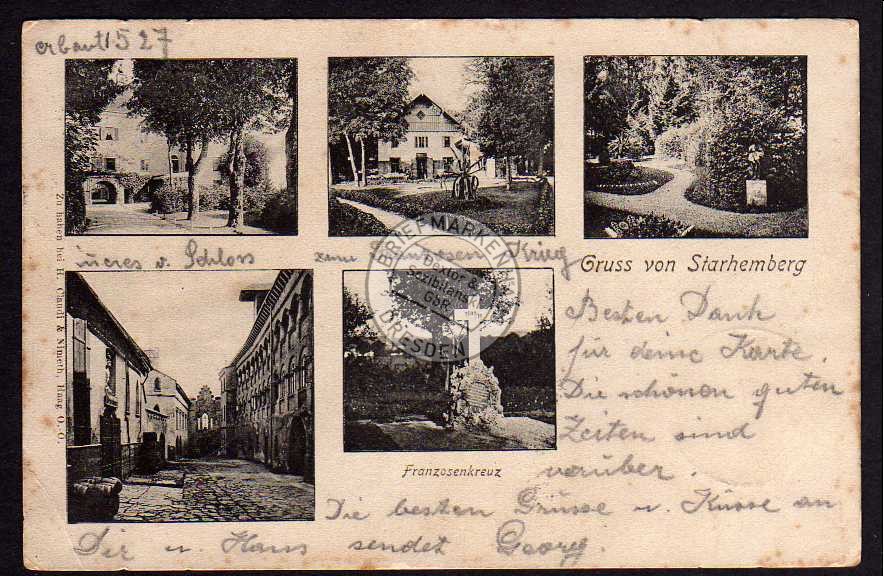 erbaut 1527
Zu haben bei H. & Nimeth, Haag O.-Ö.
v. Schloss
zum Krieg
BRIEFMARKEN
DRESDEN
GbR
Gruss von Starhemberg
Besten Dank
für deine Karte.
Die schönen guten
Zeiten sind
vorüber.
Franzosenkreuz
Die besten Grüsse u. Küsse an
Dir u. Hans sendet Georg.